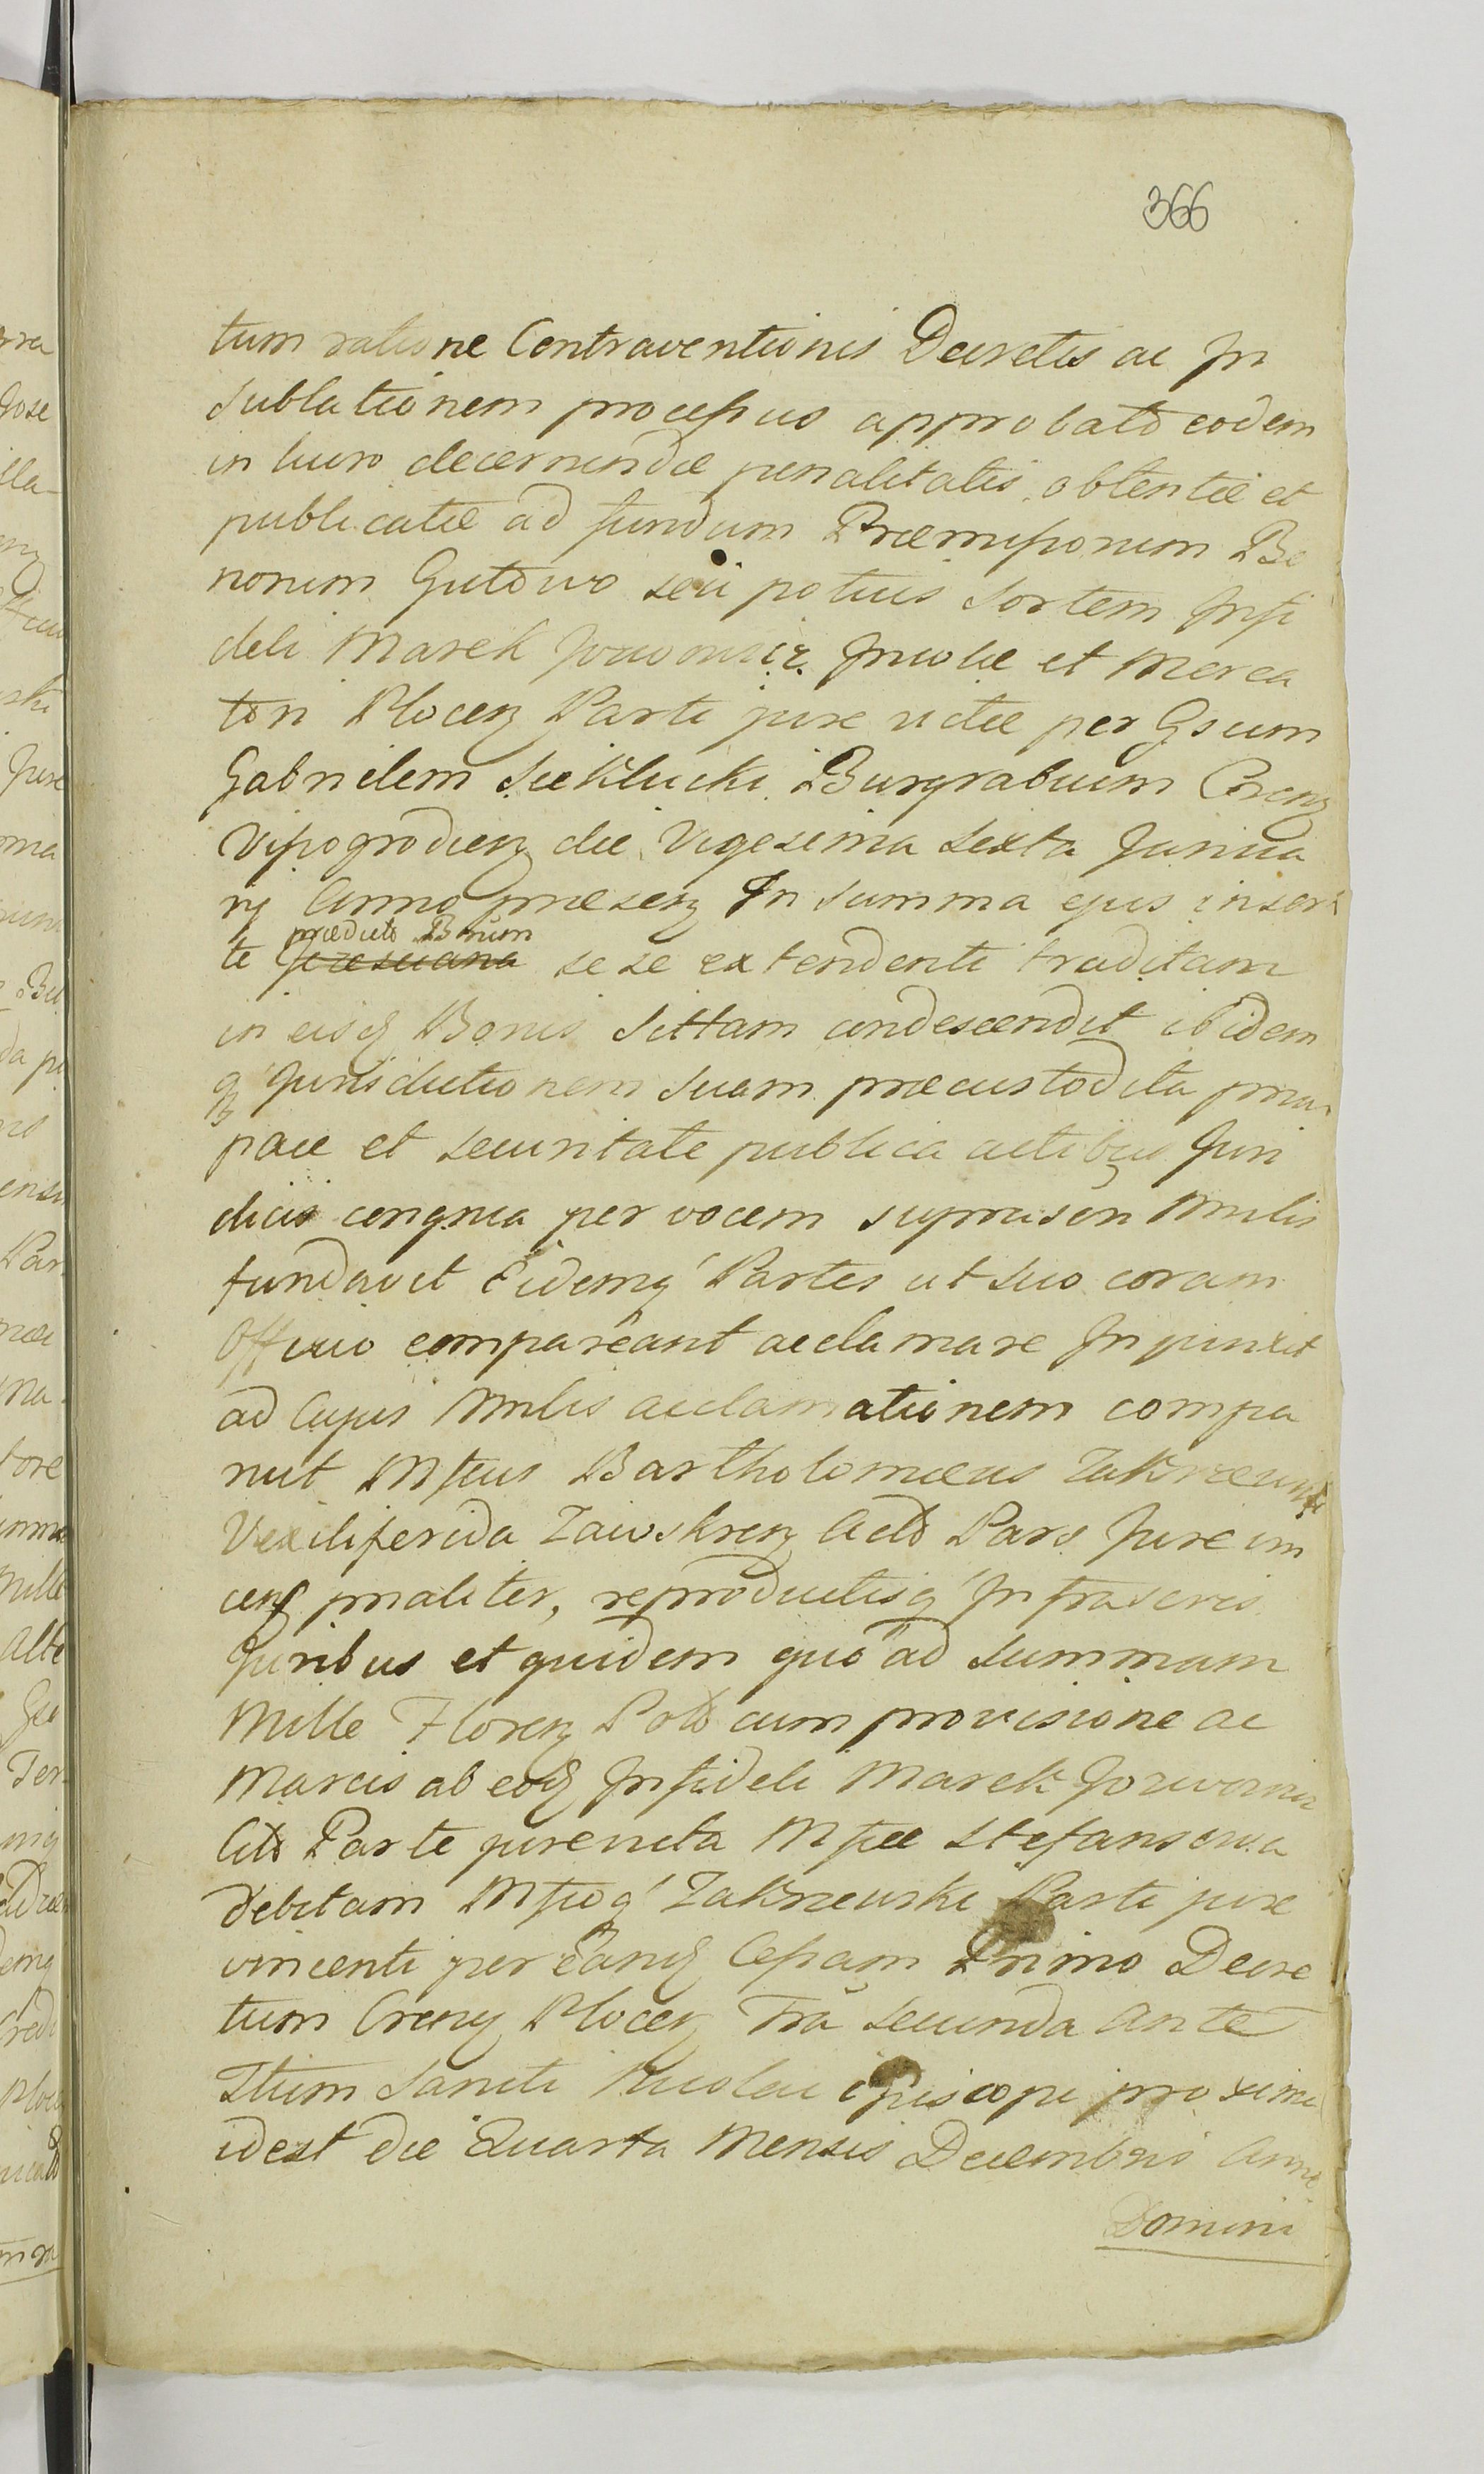 366
tum ratione Contraventionis Decretis ac In
sublationem processus approbato eodem
in lucro decernendæ penalitatis obtentæ et
publicatæ ad fundum Præmissorum Bo
norum Gutowo seu potius Sortem Infi
deli Marek Incolæ et Merca
tori Plocen Parti jure victæ per Gsum
Gabrielem Siekłucki Burgrabium Cren
Wyssogrodien die Vigesima Sexta Janua
rij Anno præsen In Summa ejus insert
te prædicto Bnum sese extendenti traditam
in eisq Bonis Sittam condescendit ibidem
q Jurisdictionem Suam præcustodita prius
pace et securitate publica actibus Juri
dicis congrua per vocem suprascri Mnlis
fundavit Eidemq Partes ut suo coram
Officio compareant acclamare Injunxit
ad Cujus Mnlis acclamationem compa
ruit Mficus Bartholomæus Zakrzewski
Vexiliferida Zawskren Acto Pars Jure vin
cens pnaliter, reproductisq Infrascris
Juribus et quidem quo ad Summam
Mille Floren Pol cum provisione ac
Marcis ab eodq Infideli Marek
Cito Parte jurevicta Mficæ Stefanscia
debitam Mficoq Zakrzewski Parti jure
vincenti per Eandq Cessam Primo Decre
tum Crens Plocen Fra Secunda ante
Ftum Sancti Nicolai Episcopi proxima
idest die Quarta Mensis Decembris Anno
Domini